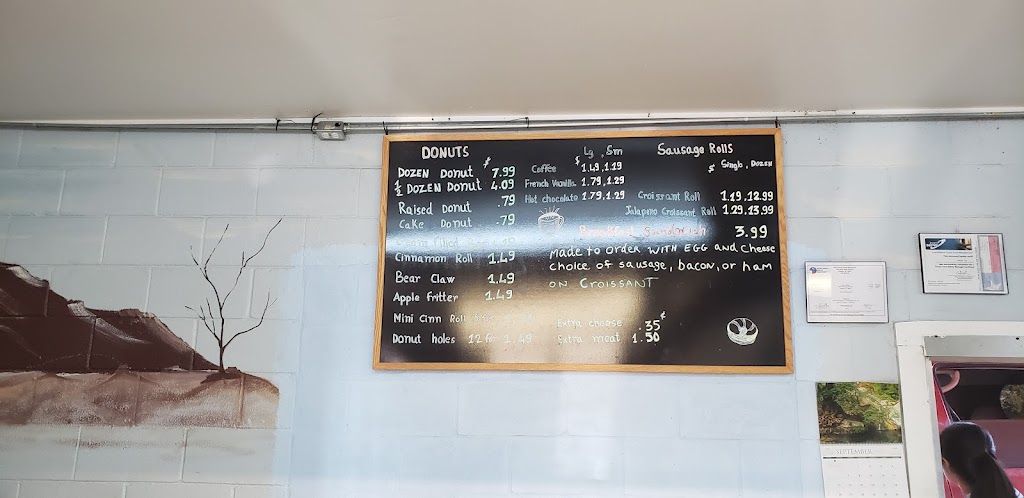 DONUTS
DOZEN Donut $ 7.99
½ DOZEN Donut 4.09
Raised Donut .79
Cake Donut .79
Cinnamon Roll 1.49
Bear Claw 1.49
Apple fritter 1.49
Mini Cinn Roll
Donut holes 12 for 1.49
Lg , Sm
Coffee $ 1.49, 1.19
French Vanilla 1.79, 1.29
Hot chocolate 1.79, 1.29
Sausage Rolls
$ Single, DOZEN
Croissant Roll 1.19, 12.99
Jalapeno Croissant Roll 1.29, 13.99
Breakfast Sandwich 3.99
Made to order with EGG and Cheese
choice of sausage, bacon, or ham
on CROISSANT
Extra cheese .35 ¢
Extra meat 1.50
SEPTEMBER